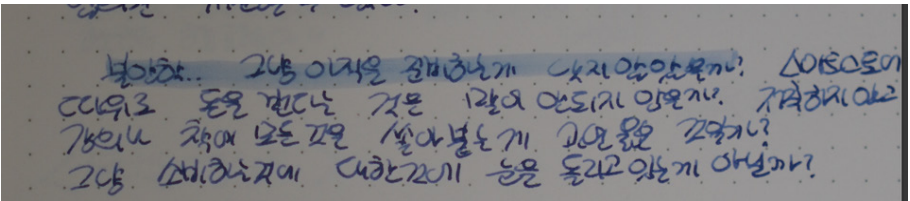 불안함.. 그냥 이직을 준비하는게 낫지 않았을까? 스마트스토어
따위로 돈을 번다는 것은 말이 안되지 않을까. 저축하지 않고
강의나 책에 모든 것을 쏟아붓는게 과연 옳은 것일까?
그냥 소비하는것에 대한것에 눈을 돌리고 있는게 아닐까?